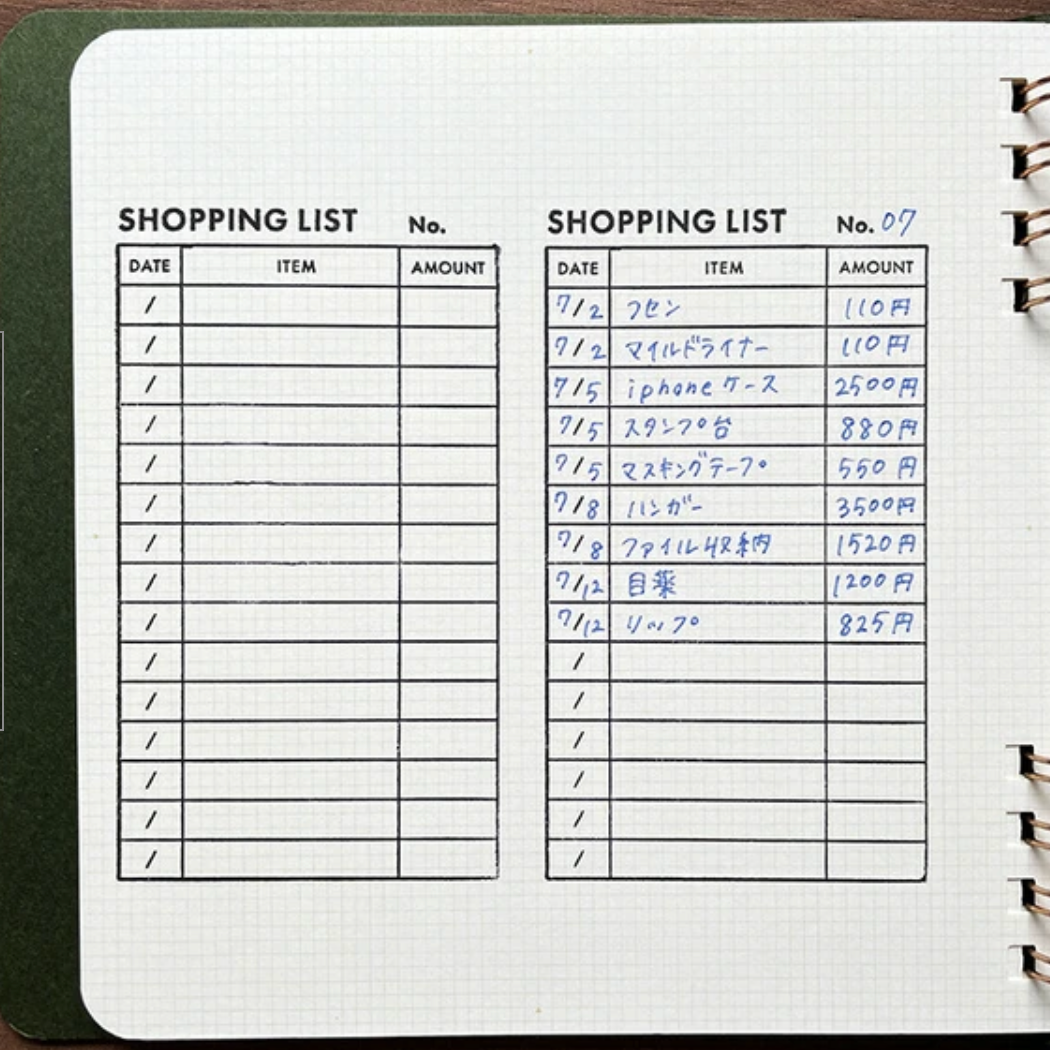 SHOPPING LIST No.
DATE ITEM AMOUNT
/
/
/
/
/
/
/
/
/
/
/
/
/
/
/
SHOPPING LIST No. 07
DATE ITEM AMOUNT
7/2 フセン 110円
7/2 マイルドライナー 110円
7/5 iphone ケース 2500円
7/5 スタンプ台 880円
7/5 マスキングテープ 550円
7/8 ハンガー 3500円
7/8 ファイル収納 1520円
7/12 目薬 1200円
7/12 リップ 825円
/
/
/
/
/
/